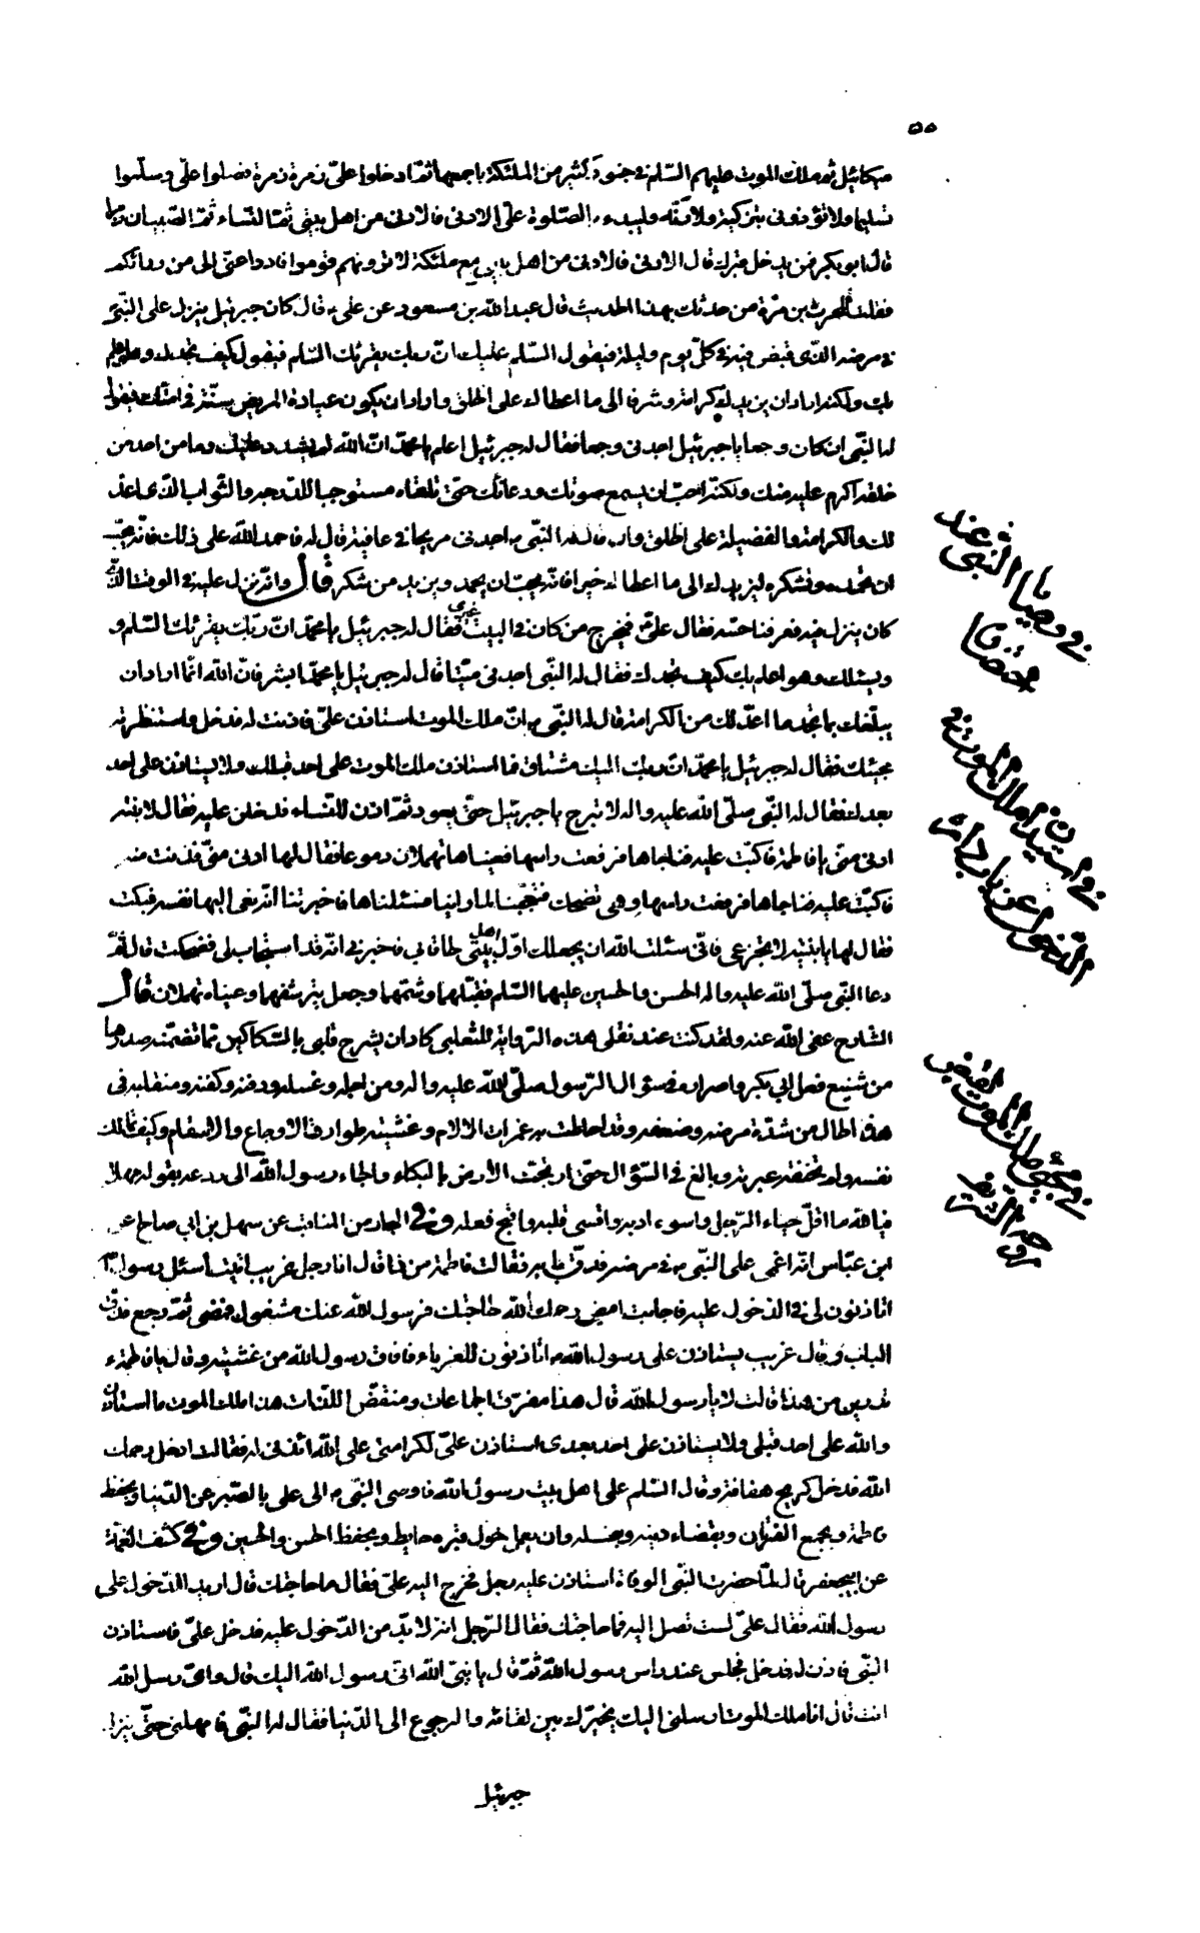 ٥٥
ميكائيل ثم ملك الموت عليهم السّلم في جنود كثير من الملئكة باجمعها ثمّ ادخلوا علىّ زمرة زمرة فصلوا علىّ وسلّموا
تسليما ولا تؤذونى بتزكية ولا رنّة وليبدء بالصّلوة علىّ الادنى فالادنى من اهل بيتى ثمّ النّساء ثمّ الصّبيان زمرا
قال ابو بكر فمن يدخل قبرك قال الادنى فالادنى من اهل بيتى مع ملئكة لا ترونهم قوموا فادوا عنّى الى من ورائكم
فقلت للحرث بن مرّة من حدثك بهذا الحديث قال عبد الله بن مسعود عن على ع قال كان جبرئيل ينزل على النّبىّ
فى مرضه الّذى قبض فيه فى كلّ يوم وليلة فيقول السّلم عليك انّ ربك يقرئك السّلم فيقول كيف تجدك وهو اعلم
بك ولكنه اراد ان يزيدك كرامة وشرفا الى ما اعطاك على الخلق واراد ان يكون عيادة المريض سنّة فى امّتك فيقول
له النّبى ان كان وجعا يا جبرئيل اجدنى وجعا فقال له جبرئيل اعلم يا محمّد انّ الله لم يشدد عليك وما من احد من
خلقه اكرم عليه منك ولكنّه احبّ ان يسمع صوتك ودعائك حتّى تلقاه مستوجبا للدرجة والثواب الّذى اعدّ
لك والكرامة والفضيلة على الخلق وان قال له النّبى ص اجدنى مريحا فى عافية قال له فاحمد الله على ذلك فانّه يحبّ
ان تحمده وتشكره ليزيدك الى ما اعطاك خيرا فانّه يحبّ ان يحمد ويزيد من شكر قال وانّه نزل عليه فى الوقت الّذى
كان ينزل فيه فعرفنا حسّه فقال علىّ ع فيخرج من كان فى البيت غيرى فقال له جبرئيل يا محمّد انّ ربّك يقرئك السّلم و
يسئلك وهو اعلم بك كيف تجدك فقال له النّبى اجدنى ميّتا قال له جبرئيل يا محمّد ابشر فانّ الله انّما اراد ان
يبلّغك بما تجد ما اعدّ لك من الكرامة قال له النّبى ص انّ ملك الموت استاذن علىّ فاذنت له فدخل واستنظرته
مجيئك فقال له جبرئيل يا محمّد انّ ربك اليك مشتاق فما استاذن ملك الموت على احد قبلك ولا يستاذن على احد
بعدك فقال له النّبى صلّى الله عليه واله لا تبرح يا جبرئيل حتّى يعود ثمّ اذن للنّساء فدخلن عليه فقال لابنته
ادنى منّى يا فاطمة فاكبّت عليه فناجاها فرفعت راسها فعيناها تهملان دموعا فقال لها ادنى منّى فدنت منه
فاكبّت عليه فناجاها فرفعت راسها وهى تضحك فتعجّبنا لما راينا فسئلناها فاخبرتنا انّه نعى اليها نفسه فبكت
فقال لها يا بنيّه لا تجزعى فانّى سئلت الله ان يجعلك اوّل اهل بيتى لحاقا بى فاخبرنى انّه قد استجاب لى فضحكت قال ثمّ
دعا النّبى صلّى الله عليه واله الحسن والحسين عليهما السّلم فقبّلهما وشمّهما وجعل يترشفهما وعيناه تهملان قال
الشّارح عفى الله عنه ولقد كنت عند نقلى هذه الرّواية للثعلبى كاد ان يشرح قلبى بالسّكاكين ممّا تضمّنه صدرها
من شنيع فعل ابى بكر واصراره فى سؤال الرّسول صلّى الله عليه واله ومن اجله وغسله ودفنه وكفنه ومنقلبه فى
هذه الحال من شدّة مرضه وضعفه وقد احاطت به غمرات الالام وغشيته طوارف الاوجاع والاسقام وكيف تمالك
نفسه ولم تخنقه عبرته وبالغ فى السّؤال حتّى ارتجّت الأرض بالبكاء والجاء رسول الله الى ردعه بقوله مهلا
فيا لله ما اقلّ حياء الرّجل واسوء ادبه واقسى قلبه واقبح فعله وفى البحار من المناقب عن سهل بن ابى صالح عن
ابن عبّاس انّه اغمى على النّبى ص فى مرضه فدقّ بابه فقالت فاطمة من ذا قال انا رجل غريب اتيت اسئل رسول الله
اتاذنون لى فى الدّخول عليه فاجابت امض رحمك الله لحاجتك فرسول الله عنك مشغول فمضى ثمّ رجع فدقّ
الباب وقال غريب يستاذن على رسول الله ص اتاذنون للغرباء فافاق رسول الله من غشيته وقال يا فاطمة ء
تدرين من هذا قالت لا يا رسول الله قال هذا مفرّق الجماعات ومنغّص اللذات هذا ملك الموت ما استاذن
والله على احد قبلى ولا يستاذن على احد بعدى استاذن علىّ لكرامتى على الله ائذنى له فقالت ادخل رحمك
الله فدخل كريح هفافة وقال السّلم على اهل بيت رسول الله فاوصى النّبى ص الى على بالصّبر عن الدّنيا وبحفظ
فاطمة وبجمع القرآن وبقضاء دينه وبغسله وان يعمل حول قبره حايط ويحفظ الحسن والحسين وفى كشف الغمّة
عن ابيجعفر قال لمّا حضرت النّبى الوفاة استاذن عليه رجل فخرج اليه علىّ فقال ما حاجتك قال اريد الدّخول على
رسول الله فقال علىّ لست تصل اليه فما حاجتك فقال الرّجل انّه لا بدّ من الدّخول عليه فدخل علىّ فاستاذن
النّبى فاذن له فدخل فجلس عند راس رسول الله ثمّ قال يا نبىّ الله انّى رسول الله اليك قال واىّ رسل الله
انت قال انا ملك الموت ارسلنى اليك يخيّرك بين لقائه والرجوع الى الدّنيا فقال له النّبى فامهلنى حتّى ينزل
جبرئيل
فى وصايا النّبى ص عند
احتضاره
فى استيذان ملك الموت فى
الدّخول على
فى مجئ ملك الموت لقبض
روحه الشّريف